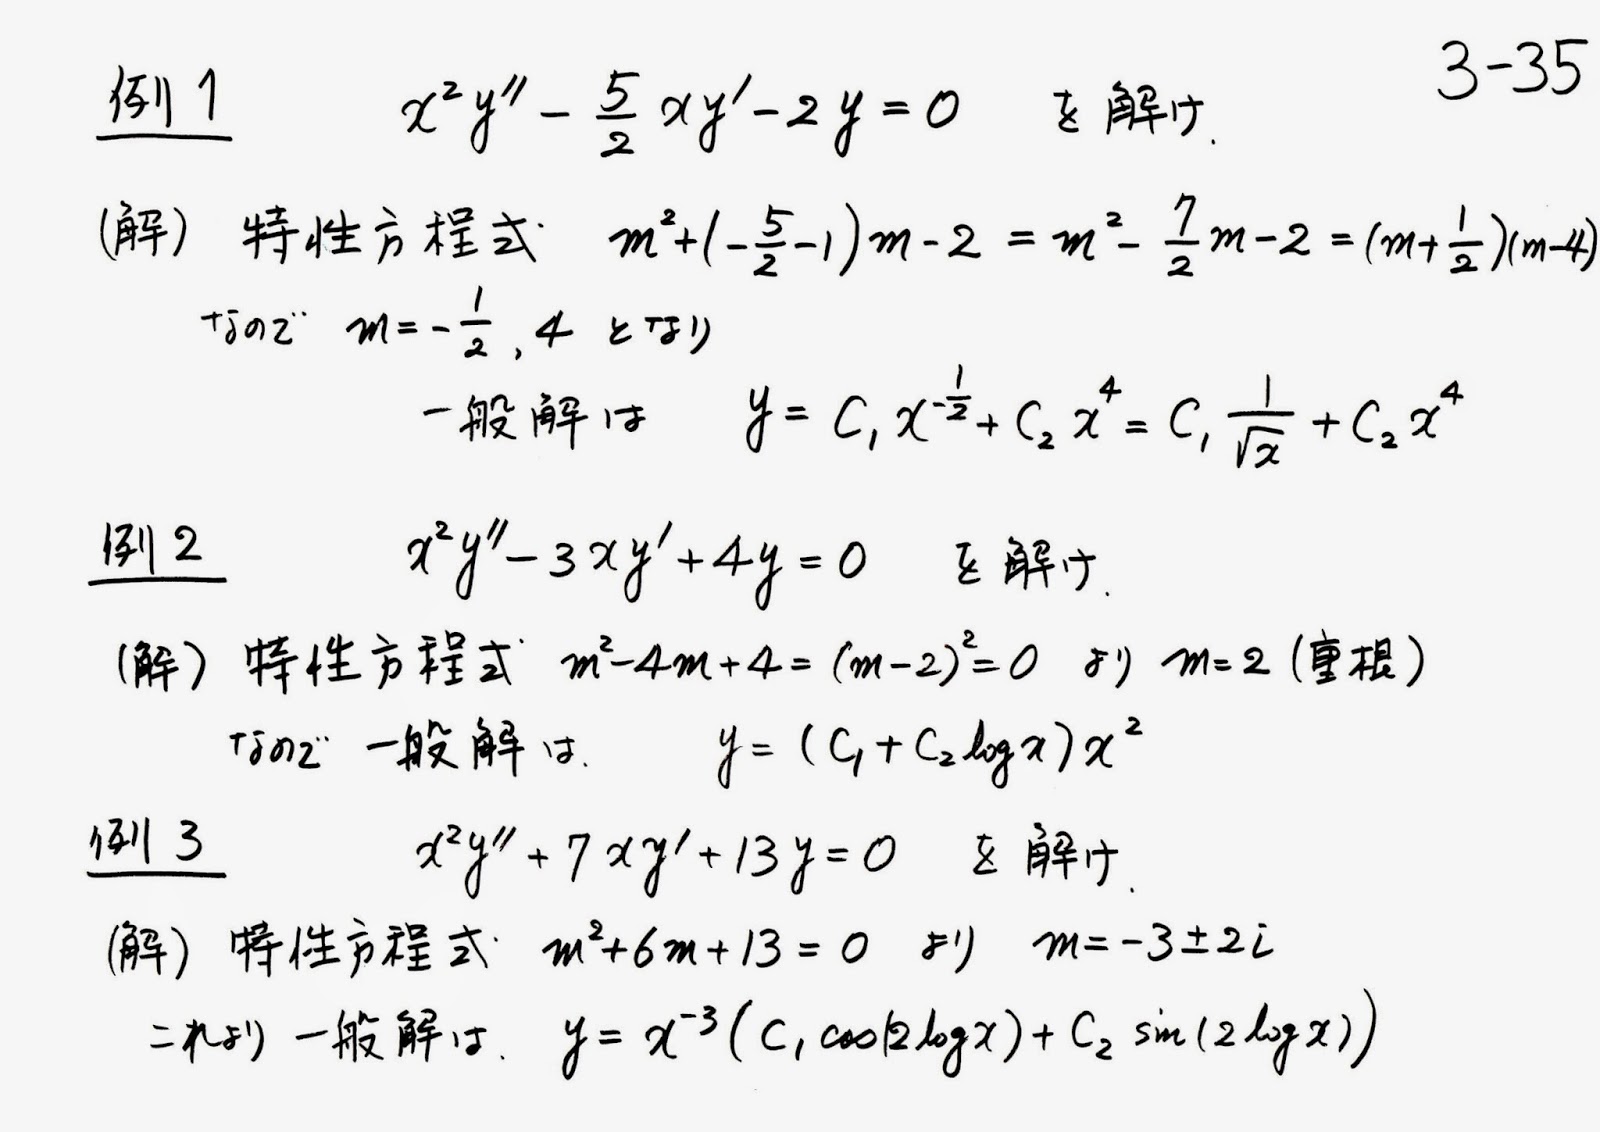 3-35
例1 x²y″ - 5/2 xy′ - 2y = 0 を解け.
(解) 特性方程式 m²+(-5/2-1)m-2 = m²-7/2m-2 = (m+1/2)(m-4)
なので m=-1/2, 4 となり
一般解は y = C₁x^(-1/2) + C₂x⁴ = C₁ 1/√x + C₂x⁴
例2 x²y″ - 3xy′ + 4y = 0 を解け.
(解) 特性方程式 m²-4m+4 = (m-2)² = 0 より m=2 (重根)
なので 一般解は. y = (C₁ + C₂ log x) x²
例3 x²y″ + 7xy′ + 13y = 0 を解け.
(解) 特性方程式 m²+6m+13 = 0 より m = -3±2i
これより 一般解は. y = x⁻³(C₁ cos(2 log x) + C₂ sin(2 log x))